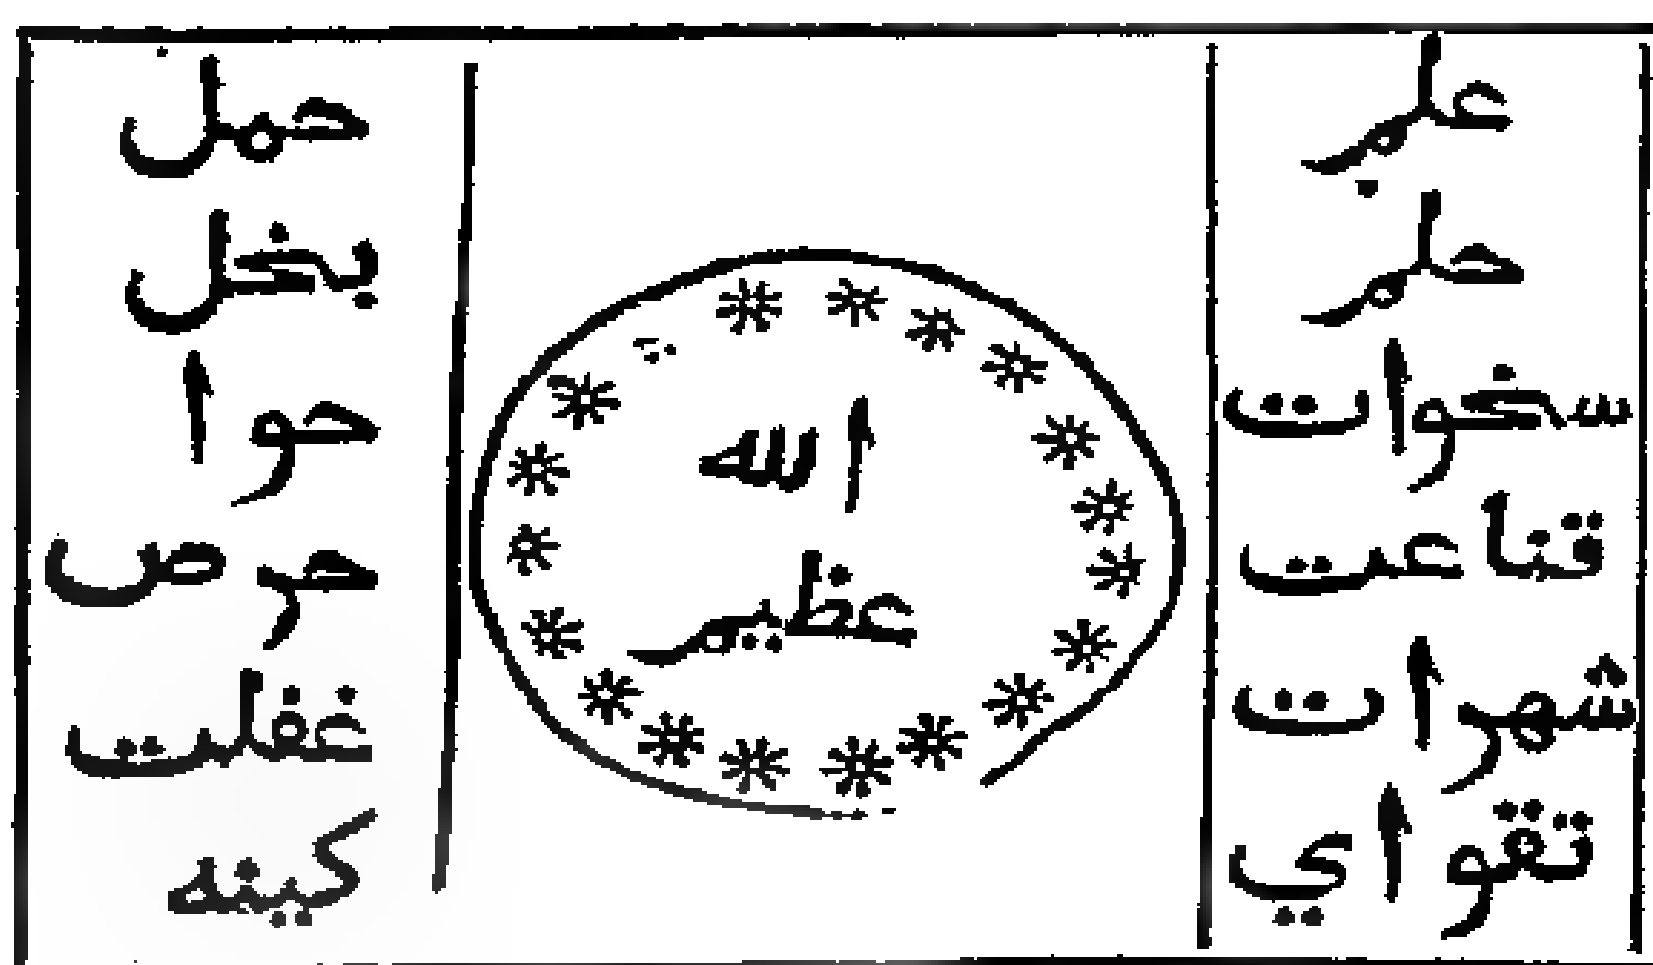 علم
حلم
سخوات
قناعت
شهرات
تقواي
الله
عظيم
حمل
بخل
حوا
حرص
غفلت
كينه